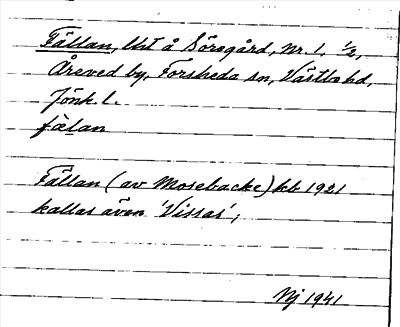 Fällan, lht å Söregård, Nr. 1, 1/2,
Åreved by, Forsheda sn, Västbo hd,
Jönk. l.
fälan
Fällan (av Mosebacke) kb 1921
kallas även 'Vissas',
Nj 1941